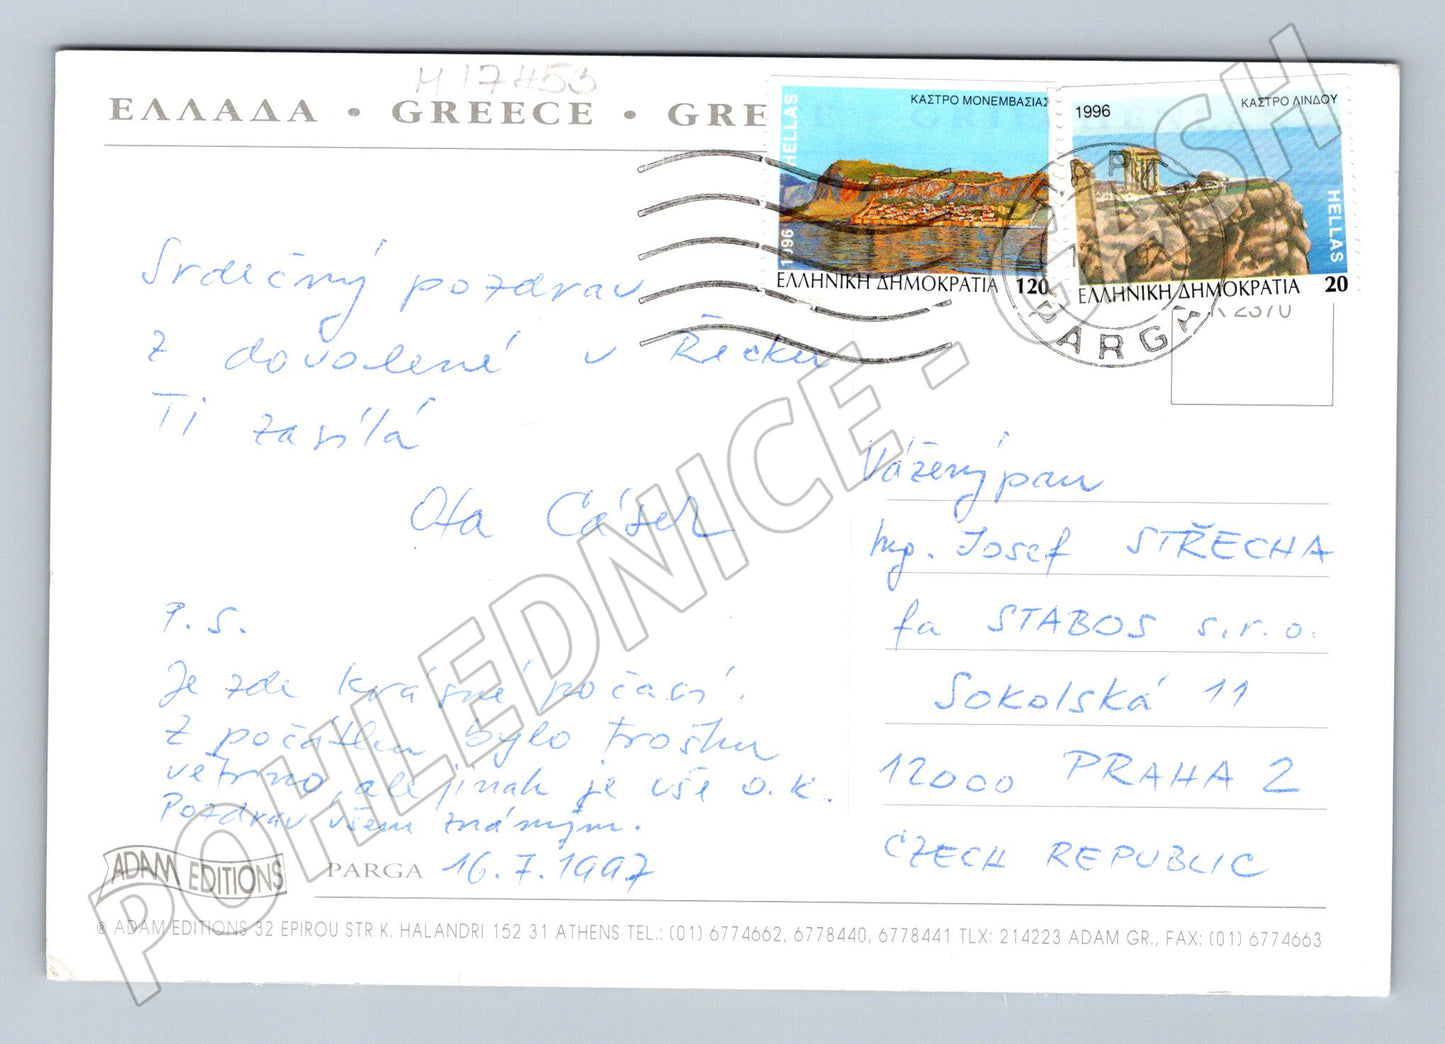 M 17453
ΕΛΛΑΔΑ • GREECE • GRE
ΚΑΣΤΡΟ ΜΟΝΕΜΒΑΣΙΑΣ
HELLAS
1996
ΕΛΛΗΝΙΚΗ ΔΗΜΟΚΡΑΤΙΑ 120
1996
ΚΑΣΤΡΟ ΛΙΝΔΟΥ
HELLAS
ΕΛΛΗΝΙΚΗ ΔΗΜΟΚΡΑΤΙΑ 20
PARGA
K 2370
Srdečný pozdrav
z dovolené v Řecku
Ti zasílá
Ota
P.S.
Je zde krásné počasí.
Z počátku bylo trošku
větrno, ale jinak je vše o.k.
Pozdrav všem známým.
PARGA 16.7.1997
Vážený pan
Ing. Josef STŘECHA
fa STABOS s.r.o.
Sokolská 11
12000 PRAHA 2
CZECH REPUBLIC
ADAM EDITIONS
© ADAM EDITIONS 32 EPIROU STR K. HALANDRI 152 31 ATHENS TEL.: (01) 6774662, 6778440, 6778441 TLX: 214223 ADAM GR., FAX: (01) 6774663
POHLEDNICE - CASH